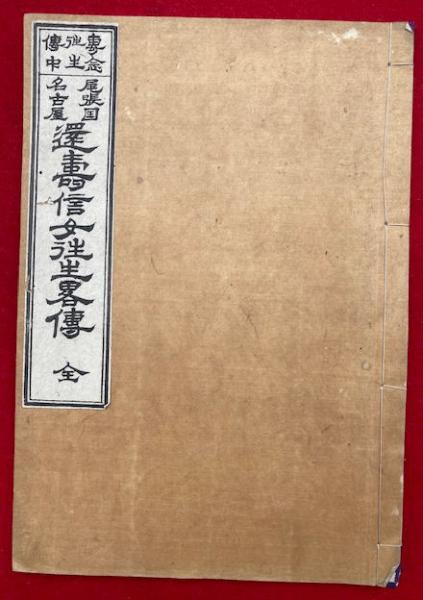 專念
往生
傳中
尾張国
名古屋
還壽信女往生畧傳 全